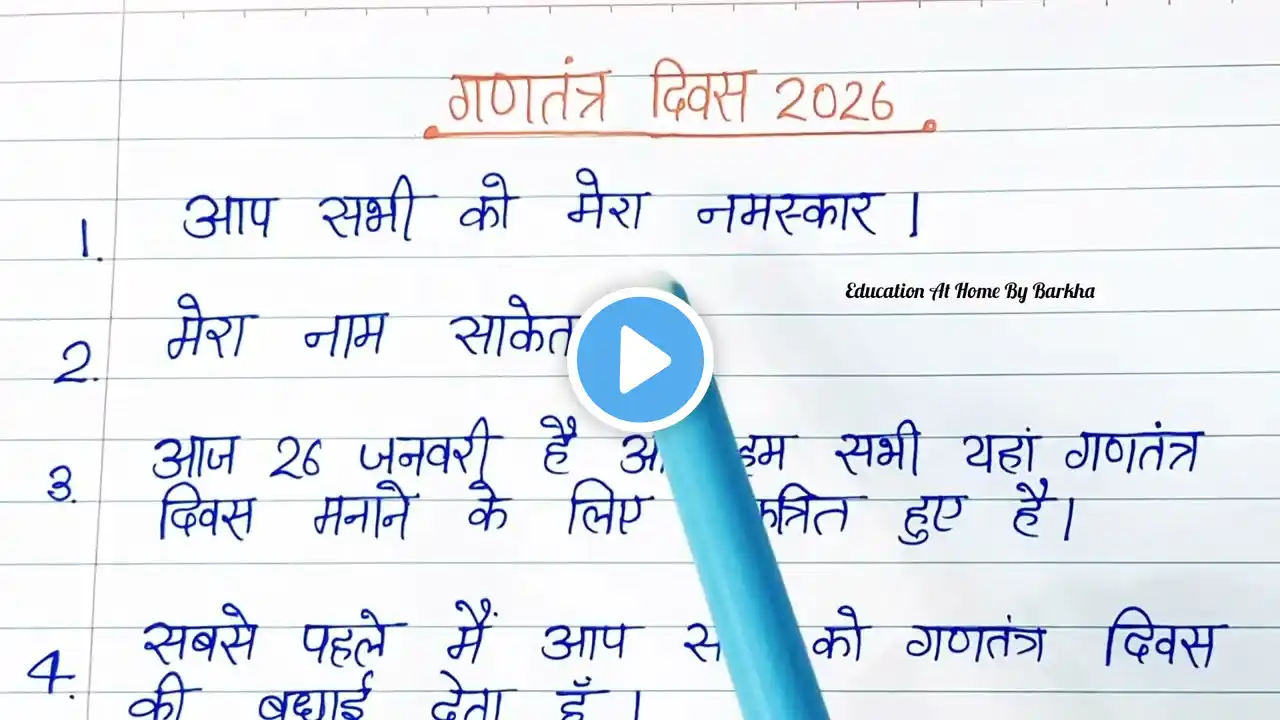 गणतंत्र दिवस 2026
1. आप सभी को मेरा नमस्कार।
Education At Home By Barkha
2. मेरा नाम साकेत
3. आज 26 जनवरी है हम सभी यहां गणतंत्र
दिवस मनाने के लिए हुए है।
4. सबसे पहले मैं आप को गणतंत्र दिवस
की बधाई देता हूँ।